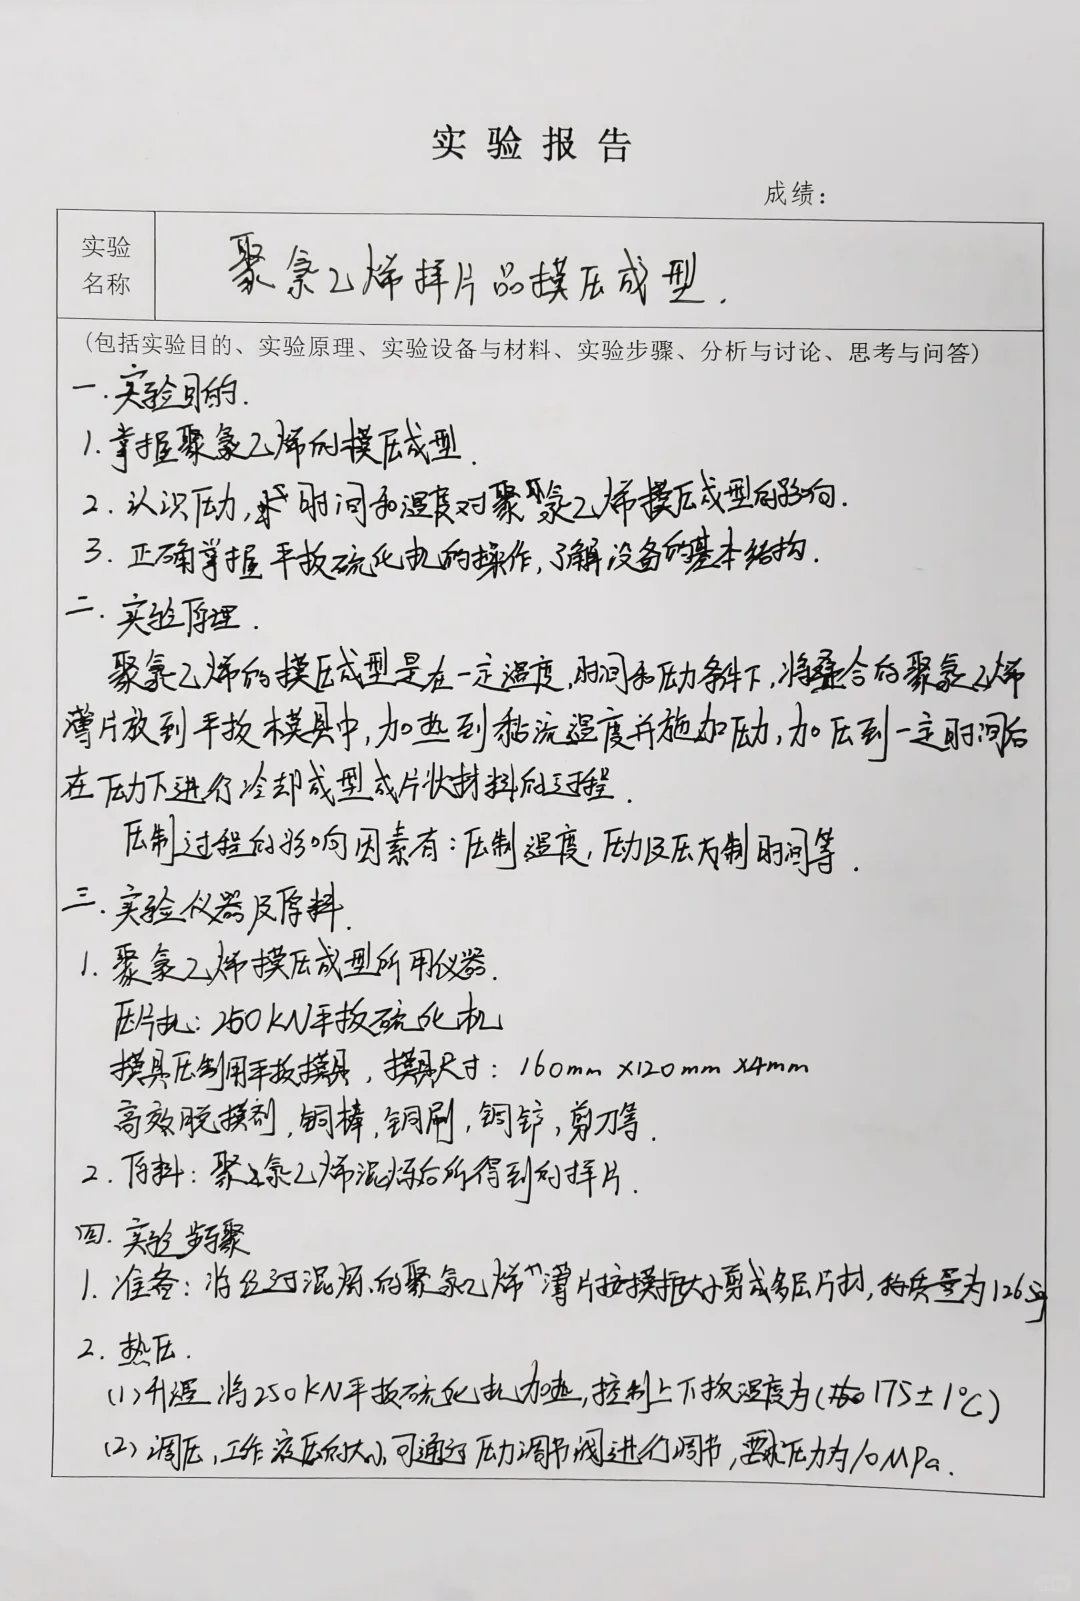 实验报告
成绩：
实验
名称
聚氯乙烯样片品模压成型.
(包括实验目的、实验原理、实验设备与材料、实验步骤、分析与讨论、思考与问答)
一.实验目的.
1.掌握聚氯乙烯的模压成型.
2.认识压力,时间和温度对聚氯乙烯模压成型的影响.
3.正确掌握平板硫化机的操作,了解设备的基本结构.
二.实验原理.
聚氯乙烯的模压成型是在一定温度,时间和压力条件下,将叠合的聚氯乙烯
薄片放到平板模具中,加热到黏流温度并施加压力,加压到一定时间后
在压力下进行冷却成型成片状材料的过程.
压制过程的影响因素有:压制温度,压力及压制时间等.
三.实验仪器及原料.
1.聚氯乙烯模压成型所用仪器.
压片机:250KN平板硫化机
模具压制用平板模具,模具尺寸:160mm×120mm×4mm
高效脱模剂,铜棒,铜刷,铜锌,剪刀等.
2.原料:聚氯乙烯混炼后所得到的样片.
四.实验步骤
1.准备:将经过混炼的聚氯乙烯薄片按模板大小剪成多层片材,称质量为126.5g
2.热压.
(1)升温 将250KN平板硫化机加热,控制上下板温度为(175±1℃)
(2)调压,工作液压的大小可通过压力调节阀进行调节,要求压力为10MPa.